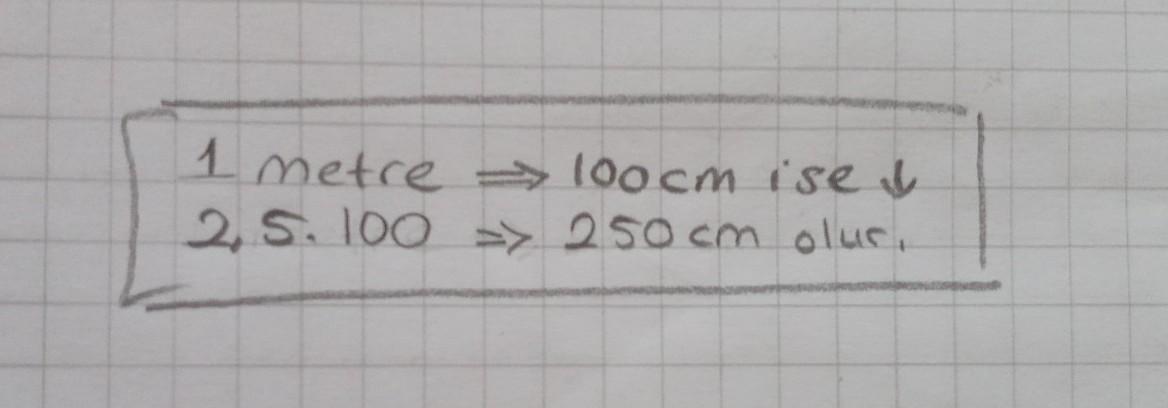 1 metre ⇒ 100cm ise ↓
2,5.100 ⇒ 250cm olur.